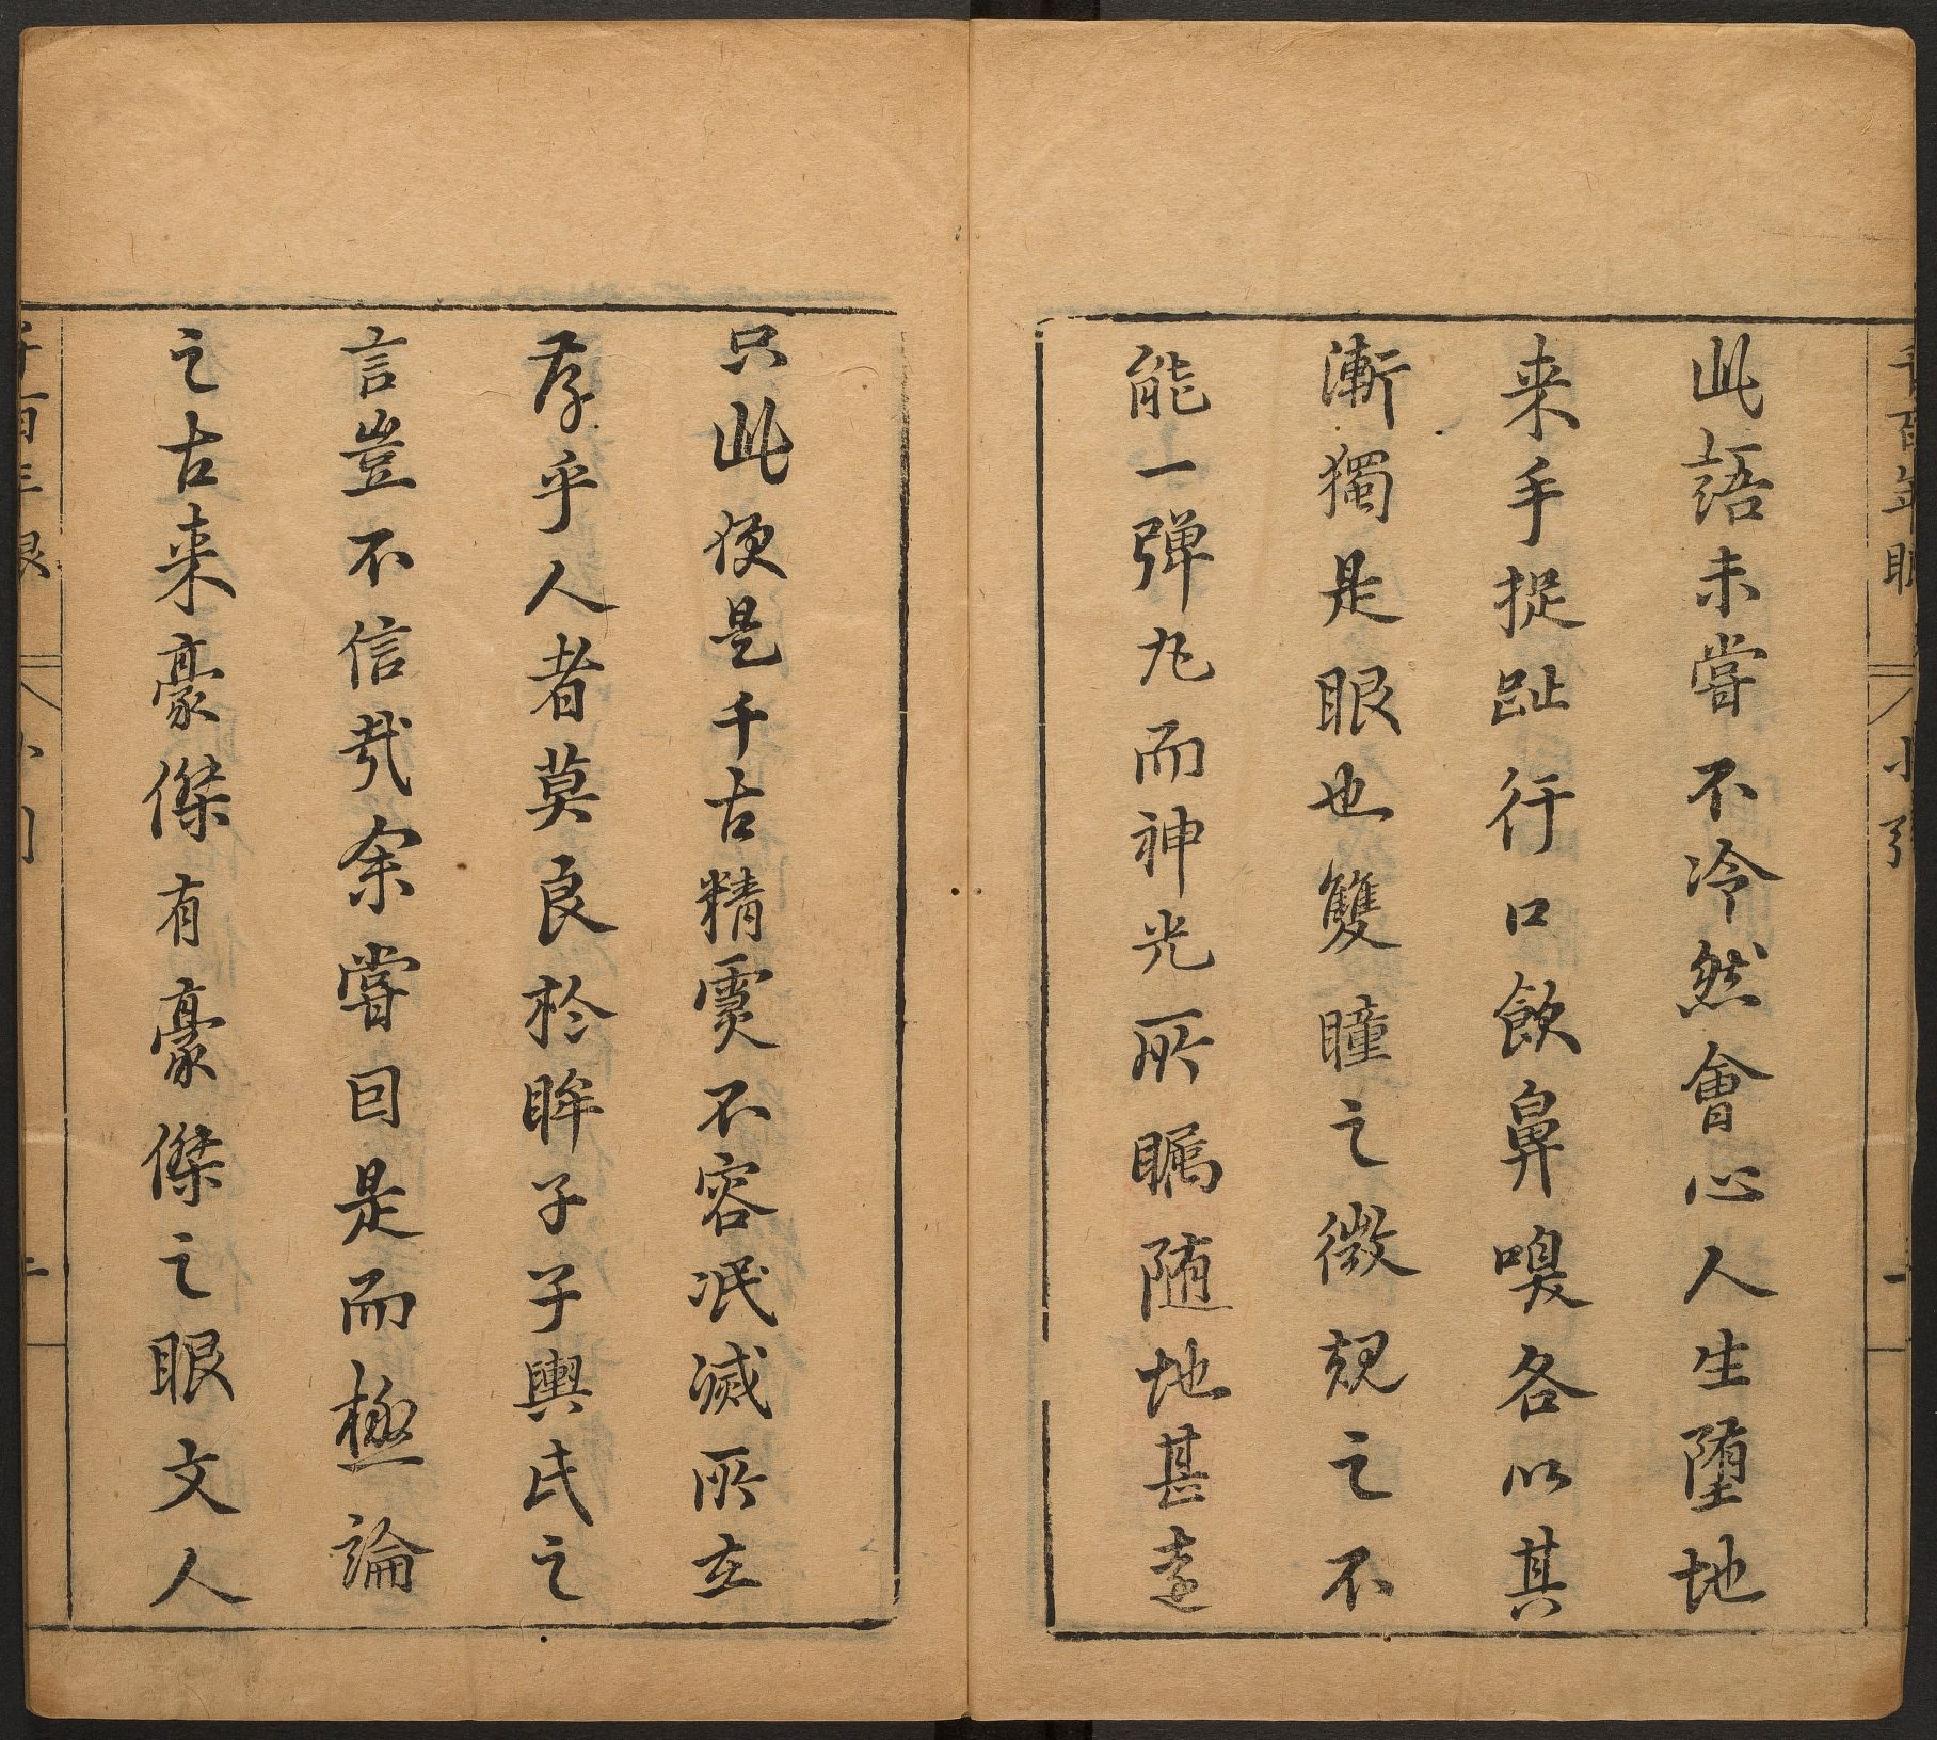 千百年眼 小引 一
此語未嘗不冷然會心人生墮地
来手捉趾行口飲鼻嗅各以其
漸獨是眼也雙瞳之微規之不
能一弹丸而神光所瞩随地甚遠
只此便是千古精靈不容泯滅所在
存乎人者莫良於眸子子輿氏之
言豈不信哉余嘗因是而極論
之古来豪傑有豪傑之眼文人
千百年眼 小引